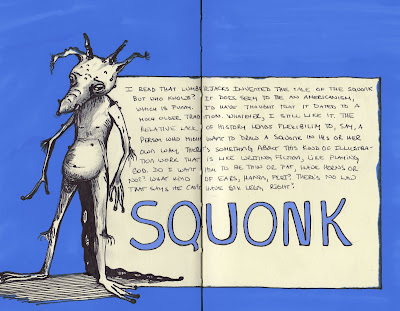 I READ THAT LUMBERJACKS INVENTED THE TALE OF THE SQUONK
BUT WHO KNOWS? IT DOES SEEM TO BE AN AMERICANISM,
WHICH IS FUNNY. I'D HAVE THOUGHT THAT IT DATED TO A
MUCH OLDER TRADITION. WHATEVER, I STILL LIKE IT. THE
RELATIVE LACK OF HISTORY LENDS FLEXIBILITY TO, SAY, A
PERSON WHO MIGHT WANT TO DRAW A SQUONK IN HIS OR HER
OWN WAY. THERE'S SOMETHING ABOUT THIS KIND OF ILLUSTRA-
TION WORK THAT IS LIKE WRITING FICTION, LIKE PLAYING
GOD. DO I WANT HIM TO BE THIN OR FAT, HAVE HORNS OR
NOT? WHAT KIND OF EARS, HANDS, FEET? THERE'S NO LAW
THAT SAYS HE CAN'T HAVE SIX LEGS, RIGHT?
SQUONK